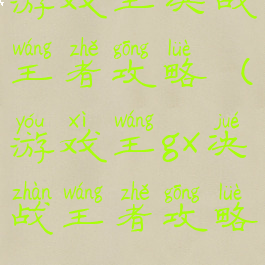 游戏王决战
wáng zhě gōng lüè
王者攻略（
yóu xì wáng jué
游戏王gx决
zhàn wáng zhě gōng lüè
战王者攻略